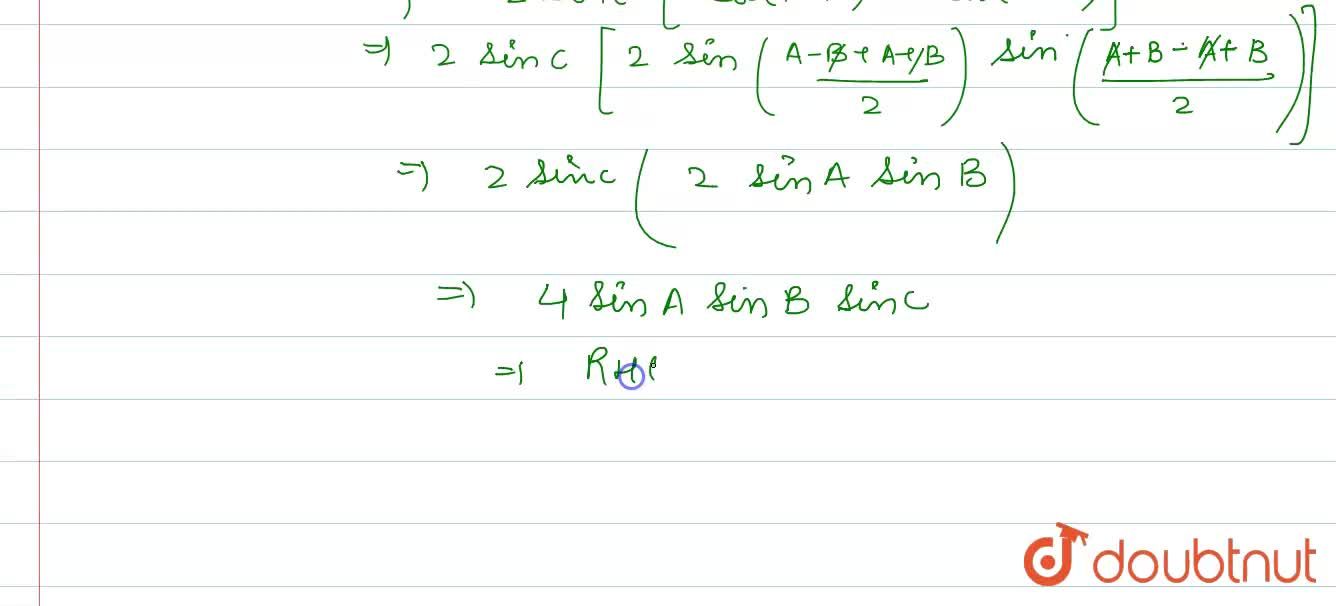 ⇒ 2 sin C [ 2 sin ( (A-B+A+B)/2 ) sin ( (A+B-A+B)/2 ) ]
⇒ 2 sin C ( 2 sin A sin B )
⇒ 4 sin A sin B sin C
⇒ RH
doubtnut